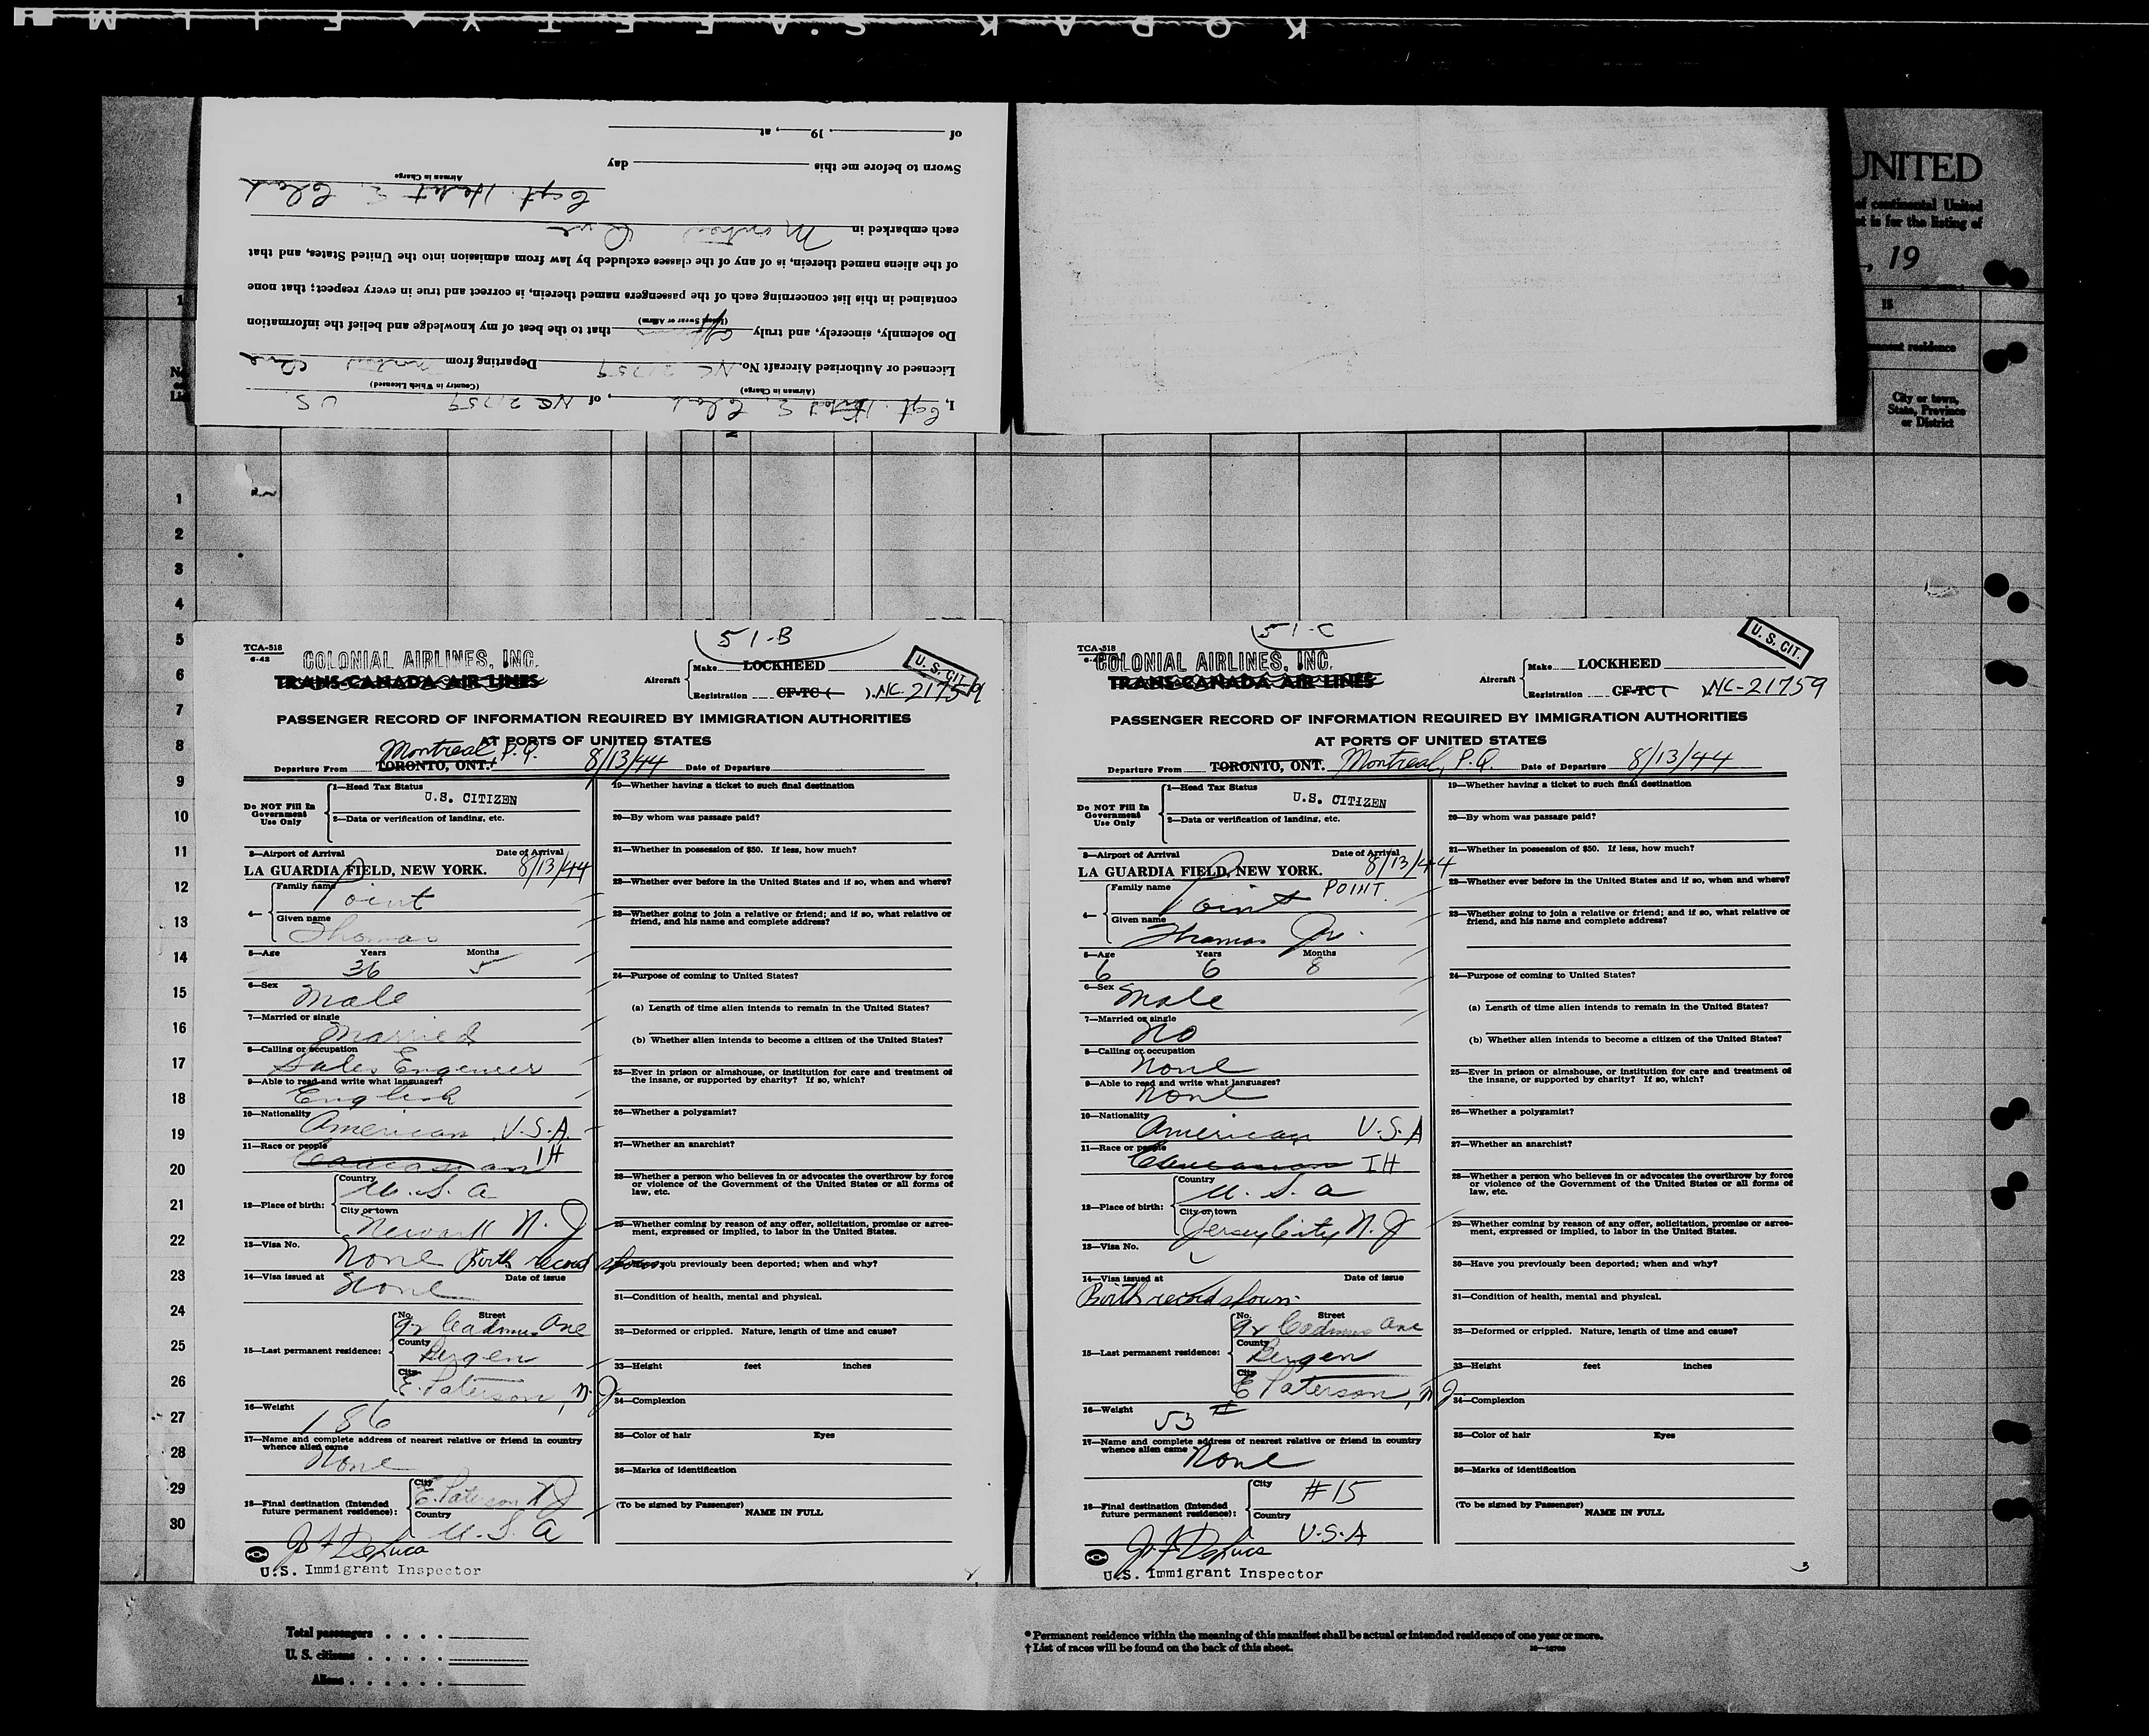 KODAK SAFETY FILM
UNITED
of continental United
t is for the listing of
, 19
15
nent residence
City or town,
State, Province
or District
I, Cpt. S. Clark, of NC 21759 U.S.
(Airman in Charge) (Country in Which Licensed)
Licensed or Authorized Aircraft No. NC 21759 Departing from Montreal Que
Do solemnly, sincerely, and truly that to the best of my knowledge and belief the information
(Swear or Affirm)
contained in this list concerning each of the passengers named therein, is correct and true in every respect; that none
of the aliens named therein, is of any of the classes excluded by law from admission into the United States, and that
each embarked in Montreal Que
Cpt. S. Clark
Airman in Charge
Sworn to before me this day
of , 19 , at
1
2
3
4
5
6
7
8
9
10
11
12
13
14
15
16
17
18
19
20
21
22
23
24
25
26
27
28
29
30
51-B
TCA-518
6-42
COLONIAL AIRLINES, INC.
TRANS-CANADA AIR LINES
U.S. CIT.
Aircraft Make LOCKHEED
Registration CF-TC ( ). NC-21759
PASSENGER RECORD OF INFORMATION REQUIRED BY IMMIGRATION AUTHORITIES
AT PORTS OF UNITED STATES
Montreal, P.Q.
Departure From TORONTO, ONT. 8/13/44 Date of Departure
Do NOT Fill In
Government
Use Only
1—Head Tax Status
U.S. CITIZEN
2—Data or verification of landing, etc.
3—Airport of Arrival Date of Arrival
LA GUARDIA FIELD, NEW YORK. 8/13/44
4— Family name
Point
Given name
Thomas
5—Age Years Months
36 5
6—Sex
Male
7—Married or single
Married
8—Calling or occupation
Sales Engineer
9—Able to read and write what languages?
English
10—Nationality
American U.S.A.
11—Race or people
Caucasian IH
12—Place of birth: Country
U. S. A
City or town
Newark N. J
13—Visa No.
None Birth record shown
14—Visa issued at Date of issue
None
15—Last permanent residence: No. Street
92 Cadmus Ave
County
Bergen
City
E. Paterson, N. J.
16—Weight
186
17—Name and complete address of nearest relative or friend in country
whence alien came
None
18—Final destination (Intended
future permanent residence): City
E. Paterson N J
Country
U. S. A
J F DeLuca
U.S. Immigrant Inspector
19—Whether having a ticket to such final destination
20—By whom was passage paid?
21—Whether in possession of $50. If less, how much?
22—Whether ever before in the United States and if so, when and where?
23—Whether going to join a relative or friend; and if so, what relative or
friend, and his name and complete address?
24—Purpose of coming to United States?
(a) Length of time alien intends to remain in the United States?
(b) Whether alien intends to become a citizen of the United States?
25—Ever in prison or almshouse, or institution for care and treatment of
the insane, or supported by charity? If so, which?
26—Whether a polygamist?
27—Whether an anarchist?
28—Whether a person who believes in or advocates the overthrow by force
or violence of the Government of the United States or all forms of
law, etc.
29—Whether coming by reason of any offer, solicitation, promise or agree-
ment, expressed or implied, to labor in the United States.
you previously been deported; when and why?
31—Condition of health, mental and physical.
32—Deformed or crippled. Nature, length of time and cause?
33—Height feet inches
34—Complexion
35—Color of hair Eyes
36—Marks of identification
(To be signed by Passenger)
NAME IN FULL
51-C
TCA-518
COLONIAL AIRLINES, INC.
TRANS-CANADA AIR LINES
U. S. CIT.
Aircraft Make LOCKHEED
Registration CF-TC ( ). NC-21759
PASSENGER RECORD OF INFORMATION REQUIRED BY IMMIGRATION AUTHORITIES
AT PORTS OF UNITED STATES
Departure From TORONTO, ONT. Montreal, P.Q. Date of Departure 8/13/44
Do NOT Fill In
Government
Use Only
1—Head Tax Status
U.S. CITIZEN
2—Data or verification of landing, etc.
3—Airport of Arrival Date of Arrival
LA GUARDIA FIELD, NEW YORK. 8/13/44
4— Family name POINT
Point
Given name
Thomas Jr.
5—Age Years Months
6 6 8
6—Sex
Male
7—Married or single
No
8—Calling or occupation
None
9—Able to read and write what languages?
None
10—Nationality
American U.S.A
11—Race or people
Caucasian IH
12—Place of birth: Country
U. S. A
City or town
Jersey City N. J
13—Visa No.
14—Visa issued at Date of issue
Birth record shown
15—Last permanent residence: No. Street
92 Cadmus Ave
County
Bergen
City
E Paterson, N J
16—Weight
53 #
17—Name and complete address of nearest relative or friend in country
whence alien came
None
18—Final destination (Intended
future permanent residence): City
#15
Country
U.S.A
J. F DeLuca
U.S. Immigrant Inspector
19—Whether having a ticket to such final destination
20—By whom was passage paid?
21—Whether in possession of $50. If less, how much?
22—Whether ever before in the United States and if so, when and where?
23—Whether going to join a relative or friend; and if so, what relative or
friend, and his name and complete address?
24—Purpose of coming to United States?
(a) Length of time alien intends to remain in the United States?
(b) Whether alien intends to become a citizen of the United States?
25—Ever in prison or almshouse, or institution for care and treatment of
the insane, or supported by charity? If so, which?
26—Whether a polygamist?
27—Whether an anarchist?
28—Whether a person who believes in or advocates the overthrow by force
or violence of the Government of the United States or all forms of
law, etc.
29—Whether coming by reason of any offer, solicitation, promise or agree-
ment, expressed or implied, to labor in the United States.
30—Have you previously been deported; when and why?
31—Condition of health, mental and physical.
32—Deformed or crippled. Nature, length of time and cause?
33—Height feet inches
34—Complexion
35—Color of hair Eyes
36—Marks of identification
(To be signed by Passenger)
NAME IN FULL
3
Total passengers . . . .
U. S. citizens . . . . .
Aliens . . . . . .
* Permanent residence within the meaning of this manifest shall be actual or intended residence of one year or more.
† List of races will be found on the back of this sheet.